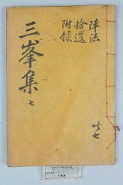 陣法
拾遺
附錄
三峯集 七
共七